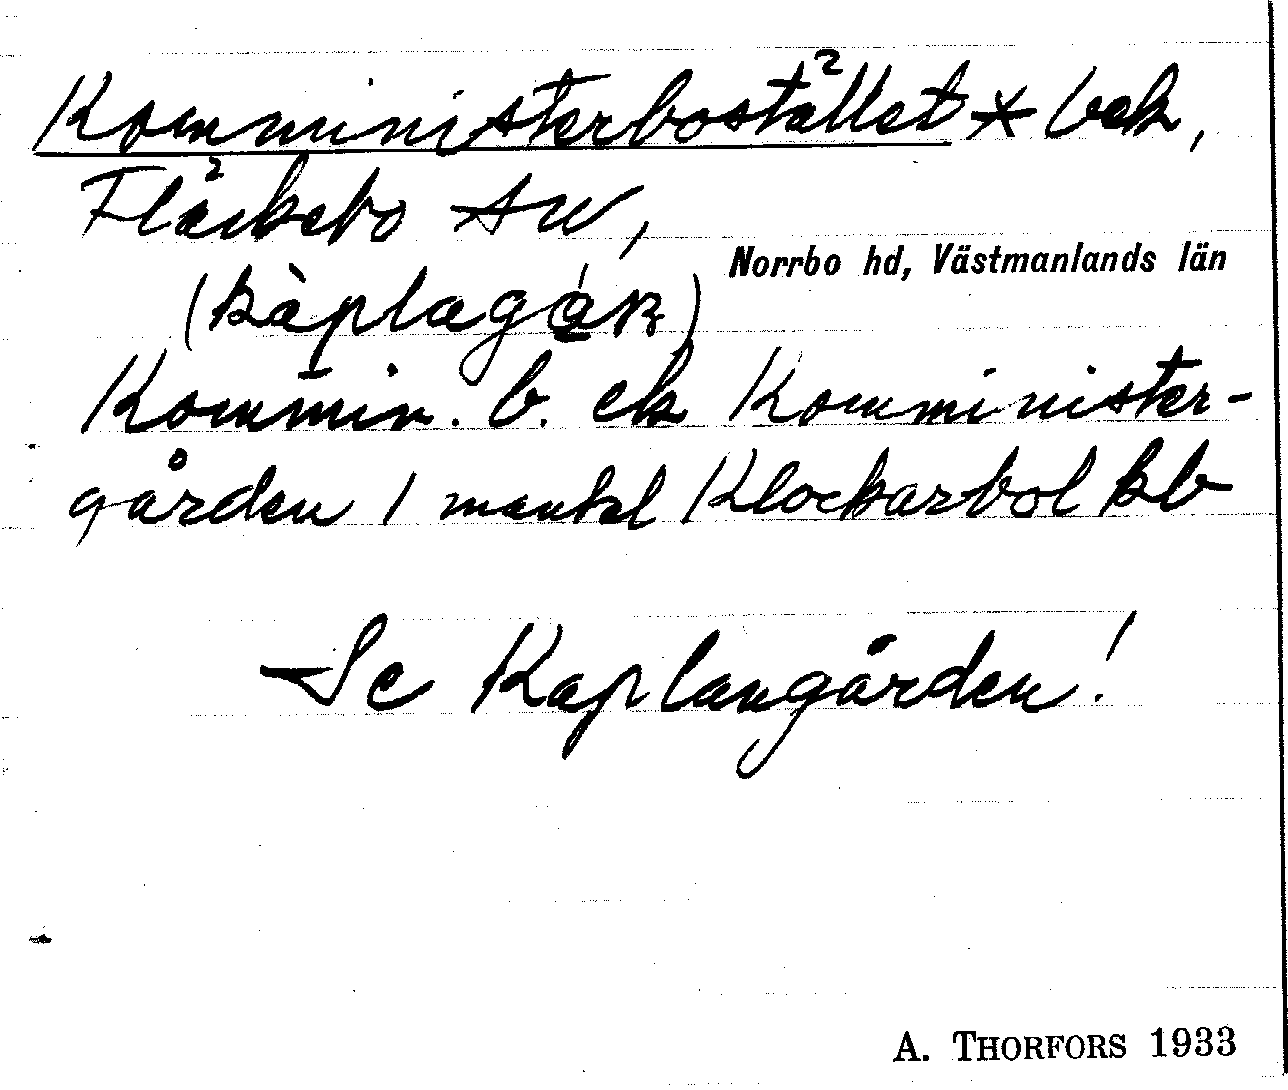 Komminister bostället × bek,
Fläckebo sn,
Norrbo hd, Västmanlands län
(kàplagáʀ)
Kommin. b. ek Komminister-
gården 1 mantl Klockarbol kb
Se Kaplangården!
A. THORFORS 1933